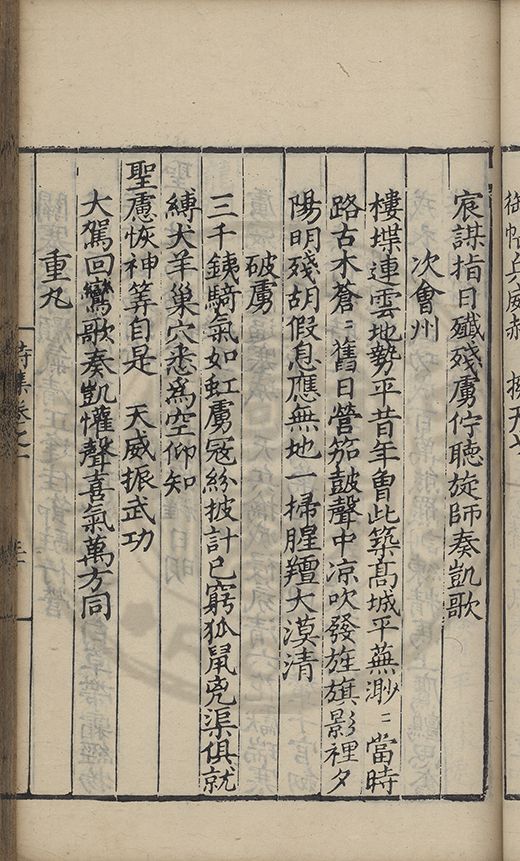 宸謀指日殲殘虜佇聽旋師奏凱歌
次會州
樓堞連雲地勢平昔年曾此築髙城平蕪渺〻當時
路古木蒼〻舊日營笳鼓聲中凉吹發旌旗影裡夕
陽明殘胡假息應無地一掃腥羶大漠清
破虜
三千銕騎氣如虹虜冦紛披計已窮狐䑕兇渠俱就
縛犬羊巢穴悉爲空仰知
聖慮恢神筭自是 天威振武功
大駕回鸞歌奏凱懽聲喜氣萬方同
重九
詩集卷之